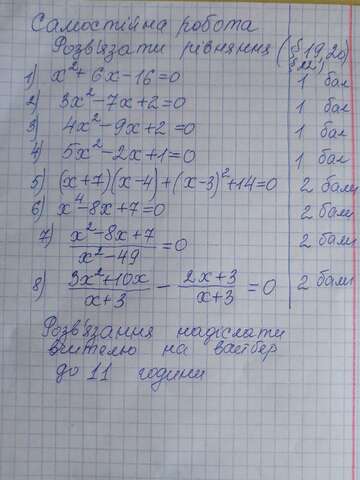 Самостійна робота
Розв'язати рівняння (§ 19,20 § 22)
1) x² + 6x - 16 = 0 1 бал
2) 3x² - 7x + 2 = 0 1 бал
3) 4x² - 9x + 2 = 0 1 бал
4) 5x² - 2x + 1 = 0 1 бал
5) (x + 7)(x - 4) + (x - 3)² + 14 = 0 2 бали
6) x⁴ - 8x + 7 = 0 2 бали
7) (x² - 8x + 7)/(x² - 49) = 0 2 бали
8) (3x² + 10x)/(x + 3) - (2x + 3)/(x + 3) = 0 2 бали
Розв'язання надіслати
вчителю на вайбер
до 11 години